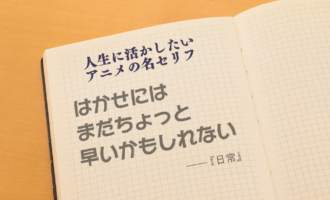 人生に活かしたい
アニメの名セリフ
はかせには
まだちょっと
早いかもしれない
――『日常』